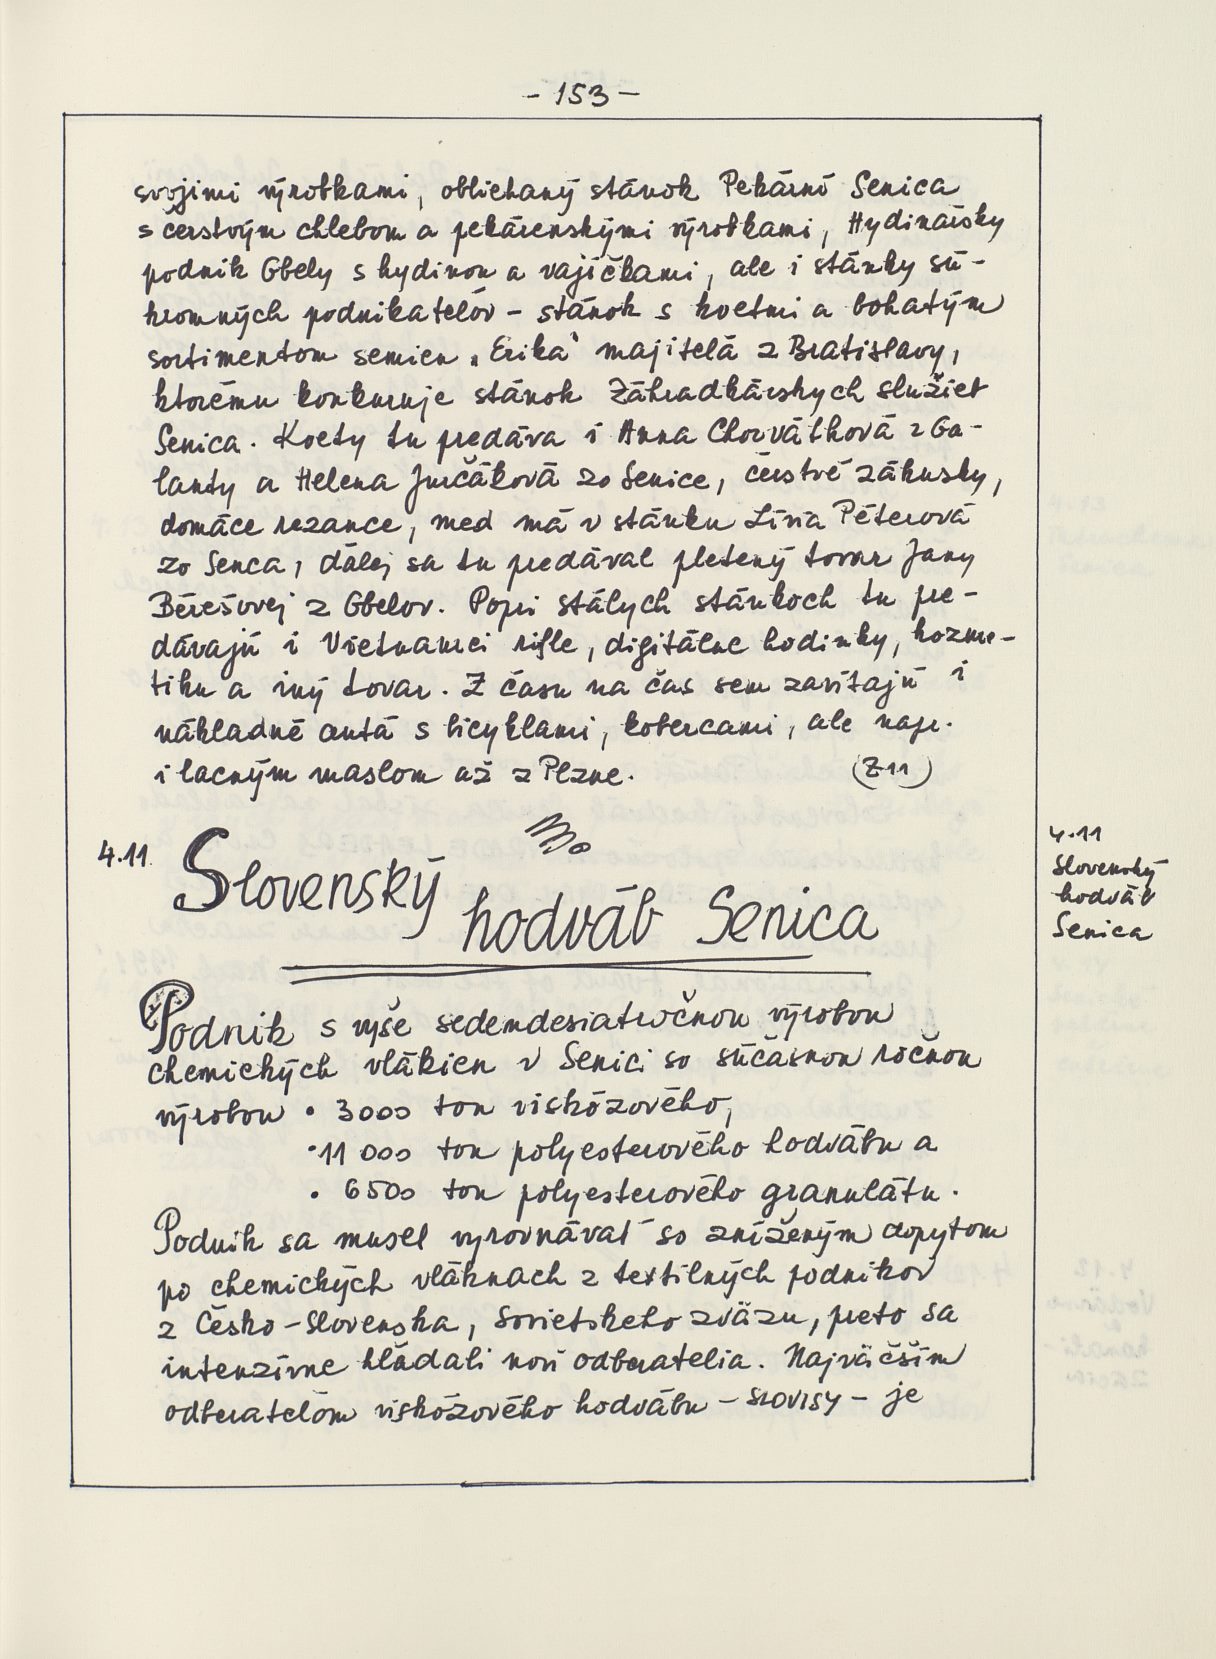 - 153 -
svojimi výrobkami, obliehaný stánok Pekární Senica
s čerstvým chlebom a pekárenskými výrobkami, Hydinársky
podnik Gbely s hydinou a vajíčkami, ale i stánky sú-
kromných podnikatelóv - stánok s kvetmi a bohatým
sortimentom semien „Erika“ majitelá z Bratislavy,
ktorému konkuruje stánok Záhradkárskych služieb
Senica. Kvety tu predáva i Anna Chorváthová z Ga-
lanty a Helena Jurčáková zo Senice, čerstvé zákusky,
domáce rezance, med má v stánku Lívia Péterová
zo Senca, dálej sa tu predával pletený tovar Jany
Bérešovej z Gbelov. Popri stálych stánkoch tu pre-
dávajú i Vietnamci rifle, digitálne hodinky, kozme-
tiku a iný tovar. Z času na čas sem zavítajú i
nákladné autá s bicyklami, kobercami, ale napr.
i lacným maslom až z Plzne. (Z11)
4.11. Slovenský hodváb Senica
4.11
Slovenský
hodváb
Senica
Podnik s vyše sedemdesiatročnou výrobou
chemických vlákien v Senici so súčasnou ročnou
výrobou • 3000 ton viskózového,
• 11 000 ton polyesterového hodvábu a
• 6500 ton polyesterového granulátu.
Podnik sa musel vyrovnávať so zníženým dopytom
po chemických vláknach z textilných podnikov
z Česko-Slovenska, Sovietskeho zväzu, preto sa
intenzívne hľadali noví odberatelia. Najväčším
odberatelom viskózového hodvábu - SLOVISY - je